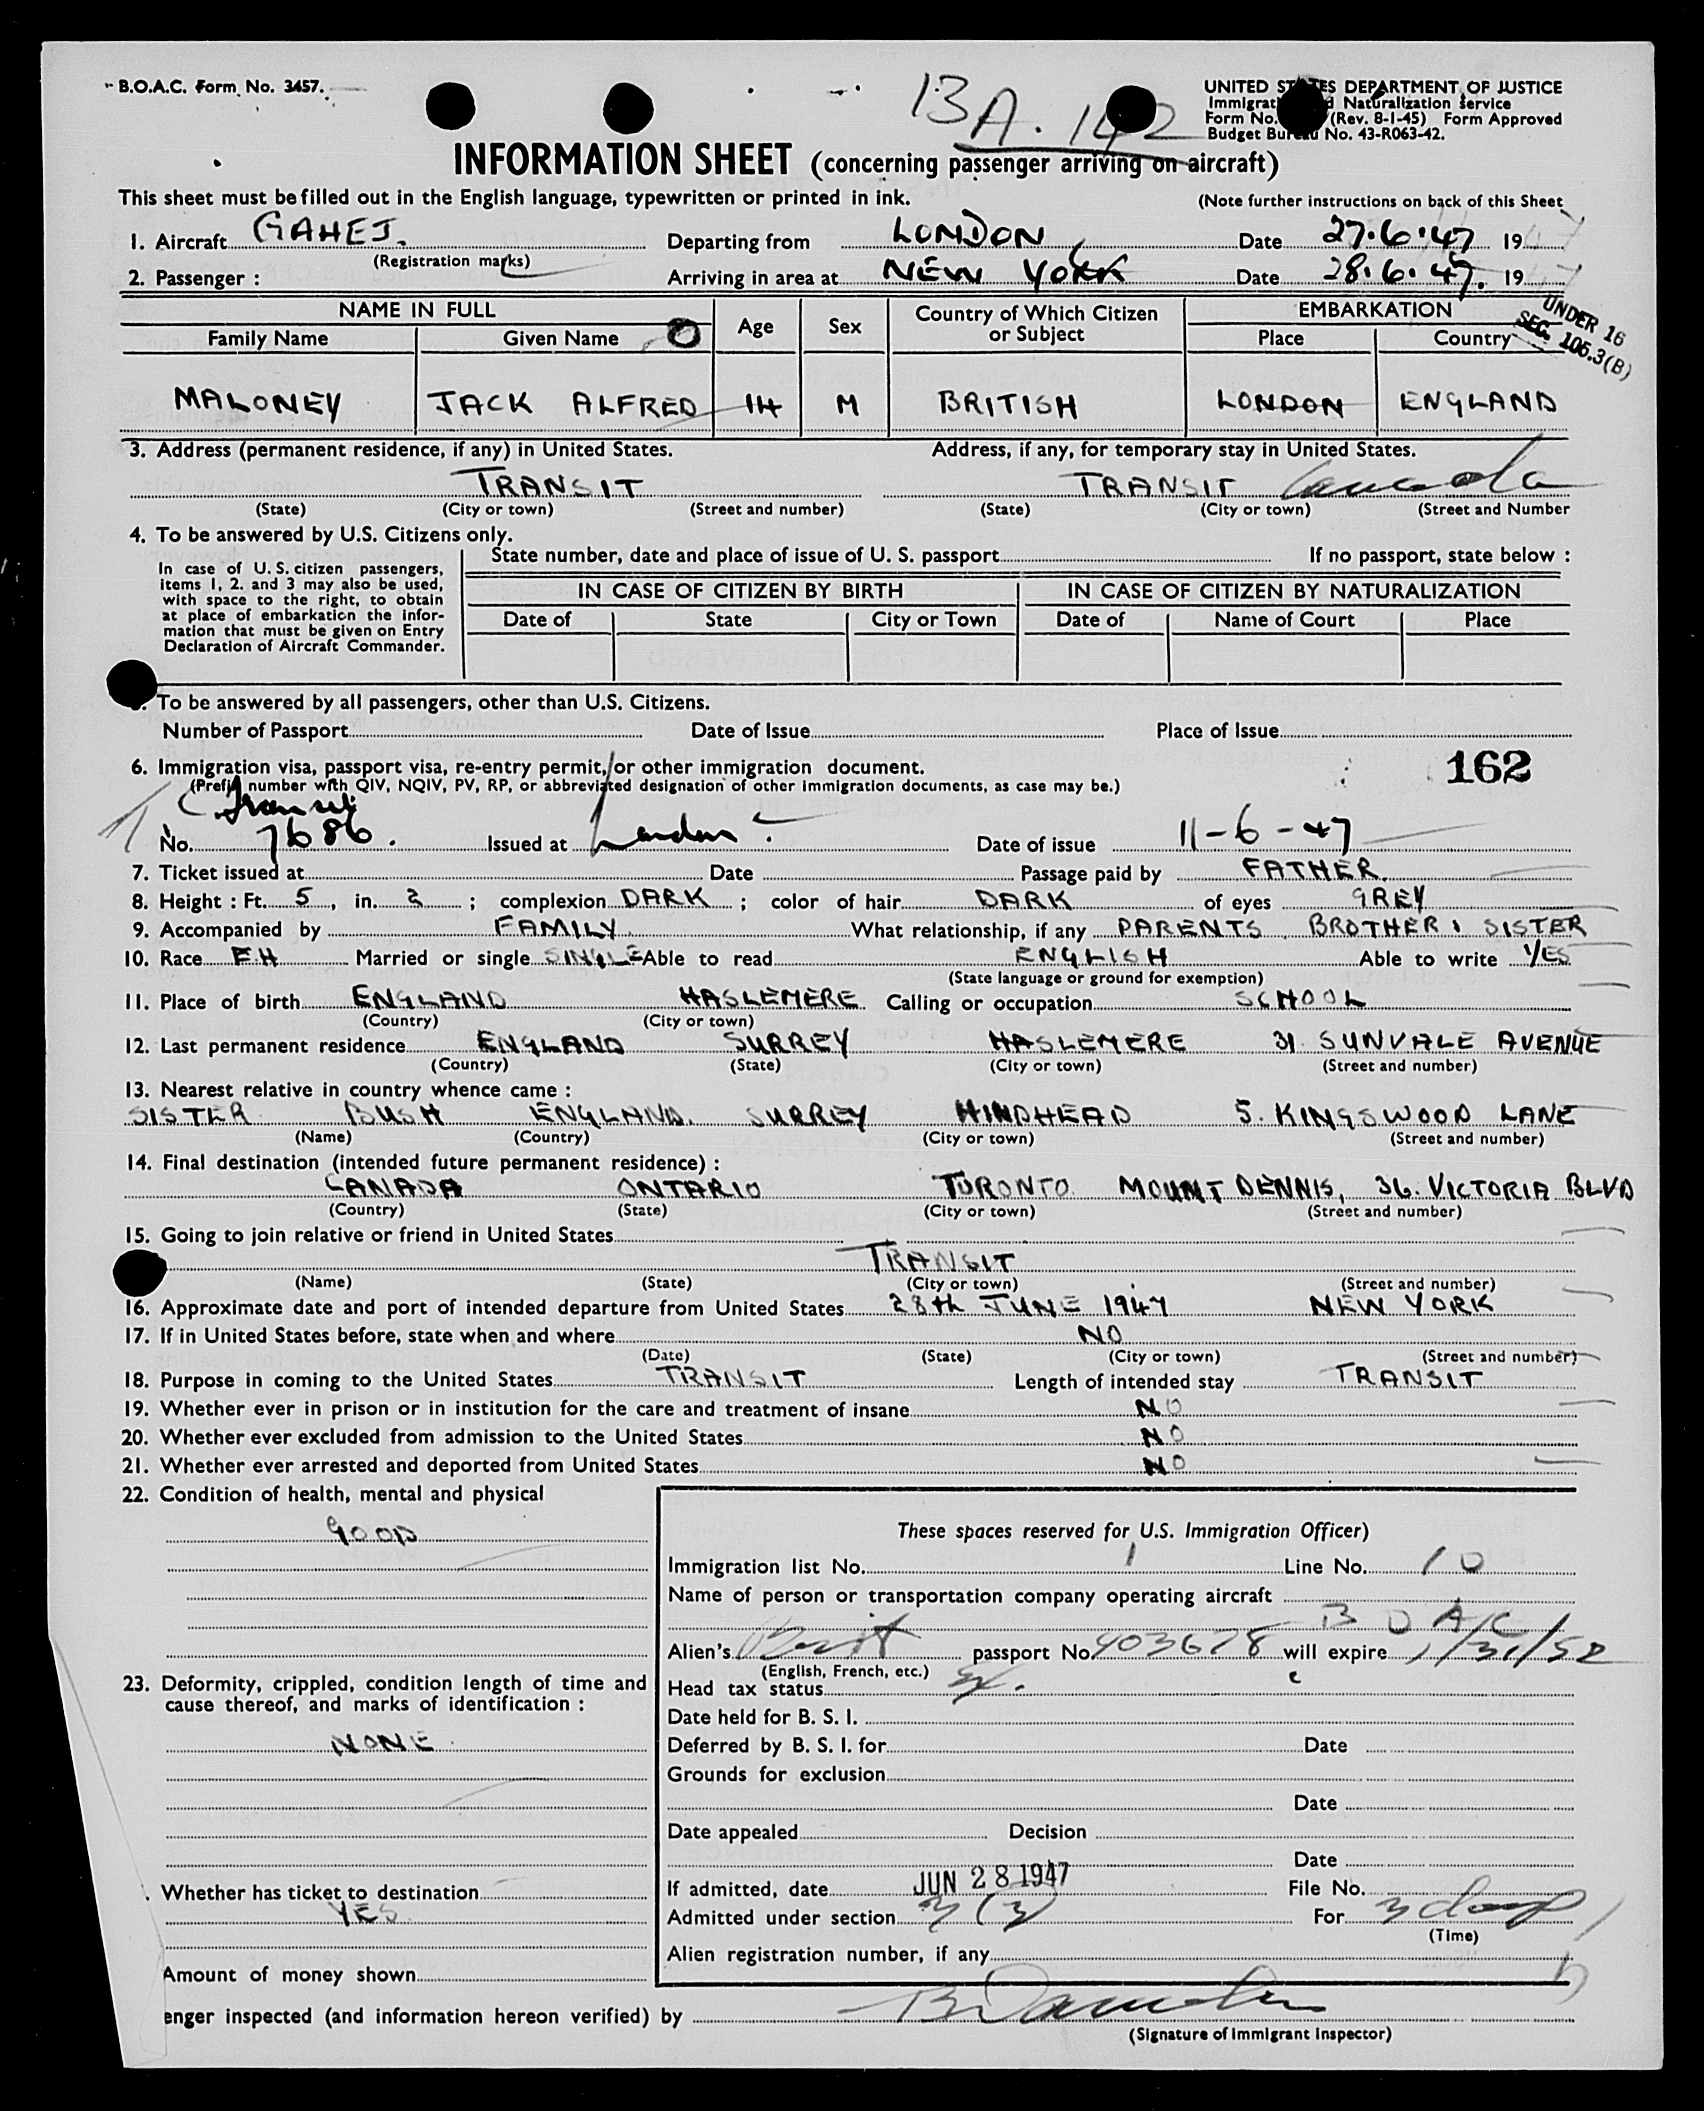 B.O.A.C. Form No. 3457.
13A. 142
UNITED STATES DEPARTMENT OF JUSTICE
Immigrat d Naturalization Service
Form No. (Rev. 8-1-45) Form Approved
Budget Bureau No. 43-R063-42.
INFORMATION SHEET (concerning passenger arriving on aircraft)
This sheet must be filled out in the English language, typewritten or printed in ink.
(Note further instructions on back of this Sheet
1. Aircraft GAHEJ. Departing from LONDON Date 27.6.47 19
(Registration marks)
2. Passenger : Arriving in area at NEW YORK Date 28.6.47. 19
NAME IN FULL Age Sex Country of Which Citizen or Subject EMBARKATION
Family Name Given Name Place Country
UNDER 16
SEC. 106.3(B)
MALONEY JACK ALFRED 14 M BRITISH LONDON ENGLAND
3. Address (permanent residence, if any) in United States. Address, if any, for temporary stay in United States.
TRANSIT TRANSIT Canada
(State) (City or town) (Street and number) (State) (City or town) (Street and Number
4. To be answered by U.S. Citizens only.
In case of U.S. citizen passengers,
items 1, 2. and 3 may also be used,
with space to the right, to obtain
at place of embarkation the infor-
mation that must be given on Entry
Declaration of Aircraft Commander.
State number, date and place of issue of U. S. passport If no passport, state below :
IN CASE OF CITIZEN BY BIRTH IN CASE OF CITIZEN BY NATURALIZATION
Date of State City or Town Date of Name of Court Place
To be answered by all passengers, other than U.S. Citizens.
Number of Passport Date of Issue Place of Issue
6. Immigration visa, passport visa, re-entry permit, or other immigration document.
162
(Prefix number with QIV, NQIV, PV, RP, or abbreviated designation of other immigration documents, as case may be.)
Transit
No. 7686. Issued at London Date of issue 11-6-47
7. Ticket issued at Date Passage paid by FATHER.
8. Height : Ft. 5, in. 2 ; complexion DARK ; color of hair DARK of eyes GREY
9. Accompanied by FAMILY What relationship, if any PARENTS, BROTHER & SISTER
10. Race E.H Married or single SINGLE Able to read ENGLISH Able to write YES
(State language or ground for exemption)
11. Place of birth ENGLAND HASLEMERE Calling or occupation SCHOOL
(Country) (City or town)
12. Last permanent residence ENGLAND SURREY HASLEMERE 31 SUNVALE AVENUE
(Country) (State) (City or town) (Street and number)
13. Nearest relative in country whence came :
SISTER BUSH ENGLAND. SURREY HINDHEAD 5. KINGSWOOD LANE
(Name) (Country) (City or town) (Street and number)
14. Final destination (intended future permanent residence) :
CANADA ONTARIO TORONTO MOUNT DENNIS, 36. VICTORIA BLVD
(Country) (State) (City or town) (Street and number)
15. Going to join relative or friend in United States
TRANSIT
(Name) (State) (City or town) (Street and number)
16. Approximate date and port of intended departure from United States 28th JUNE 1947 NEW YORK
17. If in United States before, state when and where NO
(Date) (State) (City or town) (Street and number)
18. Purpose in coming to the United States TRANSIT Length of intended stay TRANSIT
19. Whether ever in prison or in institution for the care and treatment of insane NO
20. Whether ever excluded from admission to the United States NO
21. Whether ever arrested and deported from United States NO
22. Condition of health, mental and physical
GOOD
23. Deformity, crippled, condition length of time and
cause thereof, and marks of identification :
NONE
Whether has ticket to destination
YES
Amount of money shown
These spaces reserved for U.S. Immigration Officer)
Immigration list No. 1 Line No. 10
Name of person or transportation company operating aircraft
B O A C
Alien's Brit passport No 403678 will expire 1/31/52
(English, French, etc.)
Head tax status
Date held for B. S. I.
Deferred by B. S. I. for Date
Grounds for exclusion
Date
Date appealed Decision
Date
If admitted, date JUN 28 1947 File No.
Admitted under section 3(3) For 3 days
(Time)
Alien registration number, if any
enger inspected (and information hereon verified) by
(Signature of Immigrant Inspector)